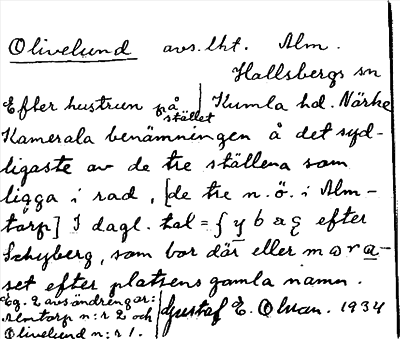 Olivelund avs. lht. Alm.
Hallsbergs sn
Efter hustrun på stället | Kumla hd. Närke
Kamerala benämningen å det syd-
ligaste av de tre ställena som
ligga i rad, [de tre n.ö. i Alm-
torp] I dagl. tal = ſ y b a ę efter
Schyberg, som bor där eller m o r a-
set efter platsens gamla namn.
Eg. 2 avsöndringar:
Almtorp n:r 2 och
Olivelund n:r 1.
Gustaf E. 1934